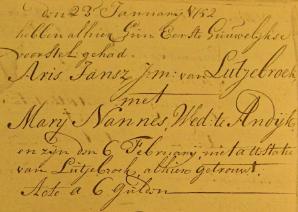 den 23 Januarij 1752
hebben alhier Hun Eerste huwelijkse
voorstel gehad.
Aris Jansz J:m: van Lutjebroek
met
Marij Nannes, Wed: te Andijk
en zijn den 6 Februarij, met attestatie
van Lutjebroek, alhier getrouwt.
Acte a 6 Gulden